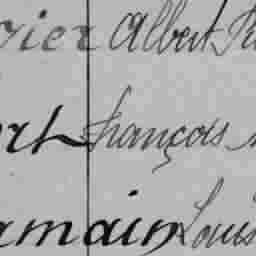 rier Albert
ert François
amain Louis